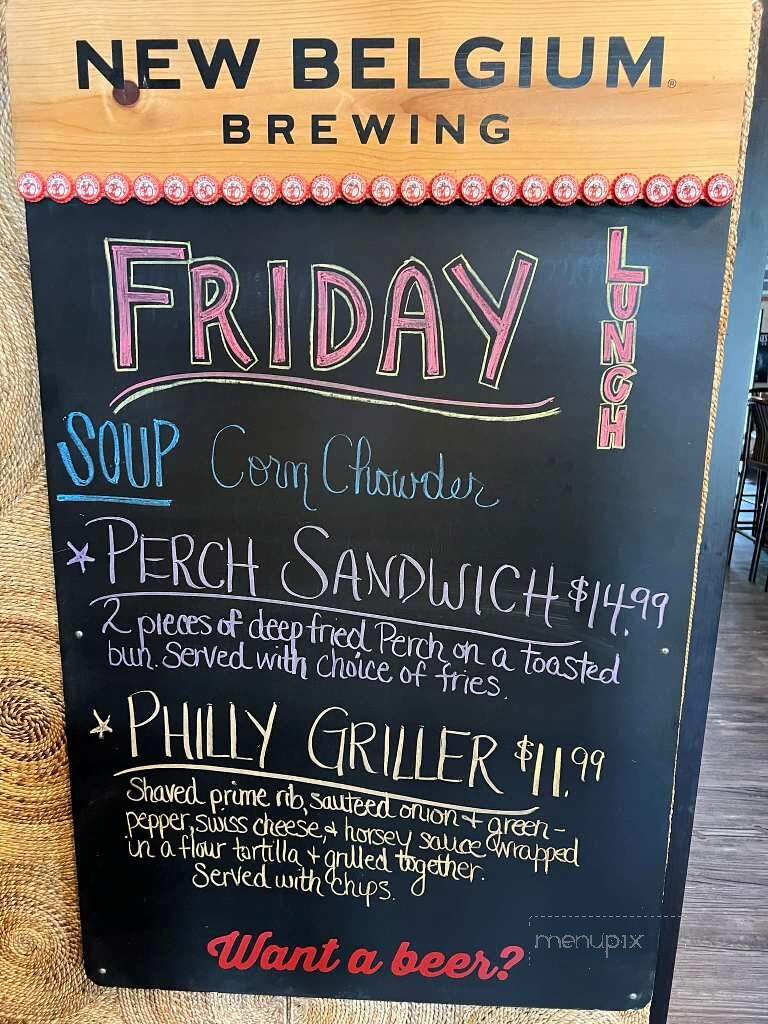 NEW BELGIUM®
BREWING
FRIDAY
LUNCH
SOUP Corn Chowder
PERCH SANDWICH $14.99
2 pieces of deep fried Perch on a toasted
bun. Served with choice of fries.
PHILLY GRILLER $11.99
Shaved prime rib, sauteed onion + green-
pepper, swiss cheese, + horsey sauce wrapped
in a flour tortilla + grilled together.
Served with chips.
Want a beer?
menupix